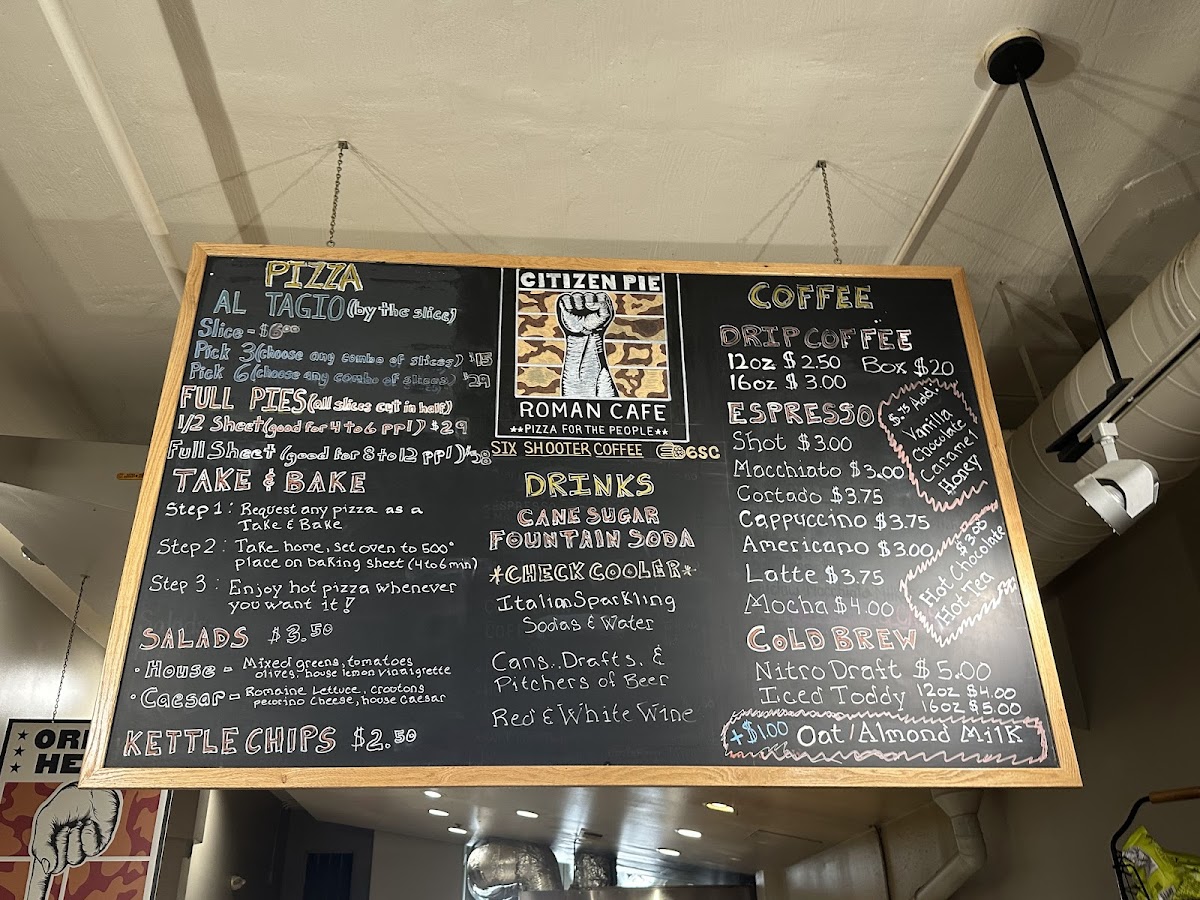 PIZZA
AL TAGIO (by the slice)
Slice - $6.00
Pick 3 (choose any combo of slices) $15
Pick 6 (choose any combo of slices) $29
FULL PIES (all slices cut in half)
1/2 Sheet (good for 4 to 6 ppl) $29
Full Sheet (good for 8 to 12 ppl) $58
TAKE & BAKE
Step 1: Request any pizza as a
Take & Bake
Step 2: Take home, set oven to 500°
place on baking sheet (4 to 6 min)
Step 3: Enjoy hot pizza whenever
you want it!
SALADS $3.50
• House - Mixed greens, tomatoes
olives, house lemon vinaigrette
• Caesar - Romaine Lettuce, crootons
pecorino cheese, house caesar
KETTLE CHIPS $2.50
CITIZEN PIE
ROMAN CAFE
★★PIZZA FOR THE PEOPLE★★
SIX SHOOTER COFFEE 6SC
DRINKS
CANE SUGAR
FOUNTAIN SODA
*CHECK COOLER*
Italian Sparkling
Sodas & Water
Cans, Drafts, &
Pitchers of Beer
Red & White Wine
COFFEE
DRIP COFFEE
12oz $2.50 Box $20
16oz $3.00
ESPRESSO
Shot $3.00
Macchiato $3.00
Cortado $3.75
Cappuccino $3.75
Americano $3.00
Latte $3.75
Mocha $4.00
$.75 Add:
Vanilla
Chocolate
Caramel
Honey
$3.00
Hot Chocolate
Hot Tea
COLD BREW
Nitro Draft $5.00
Iced Toddy 12oz $4.00
16oz $5.00
+$1.00 Oat/Almond Milk